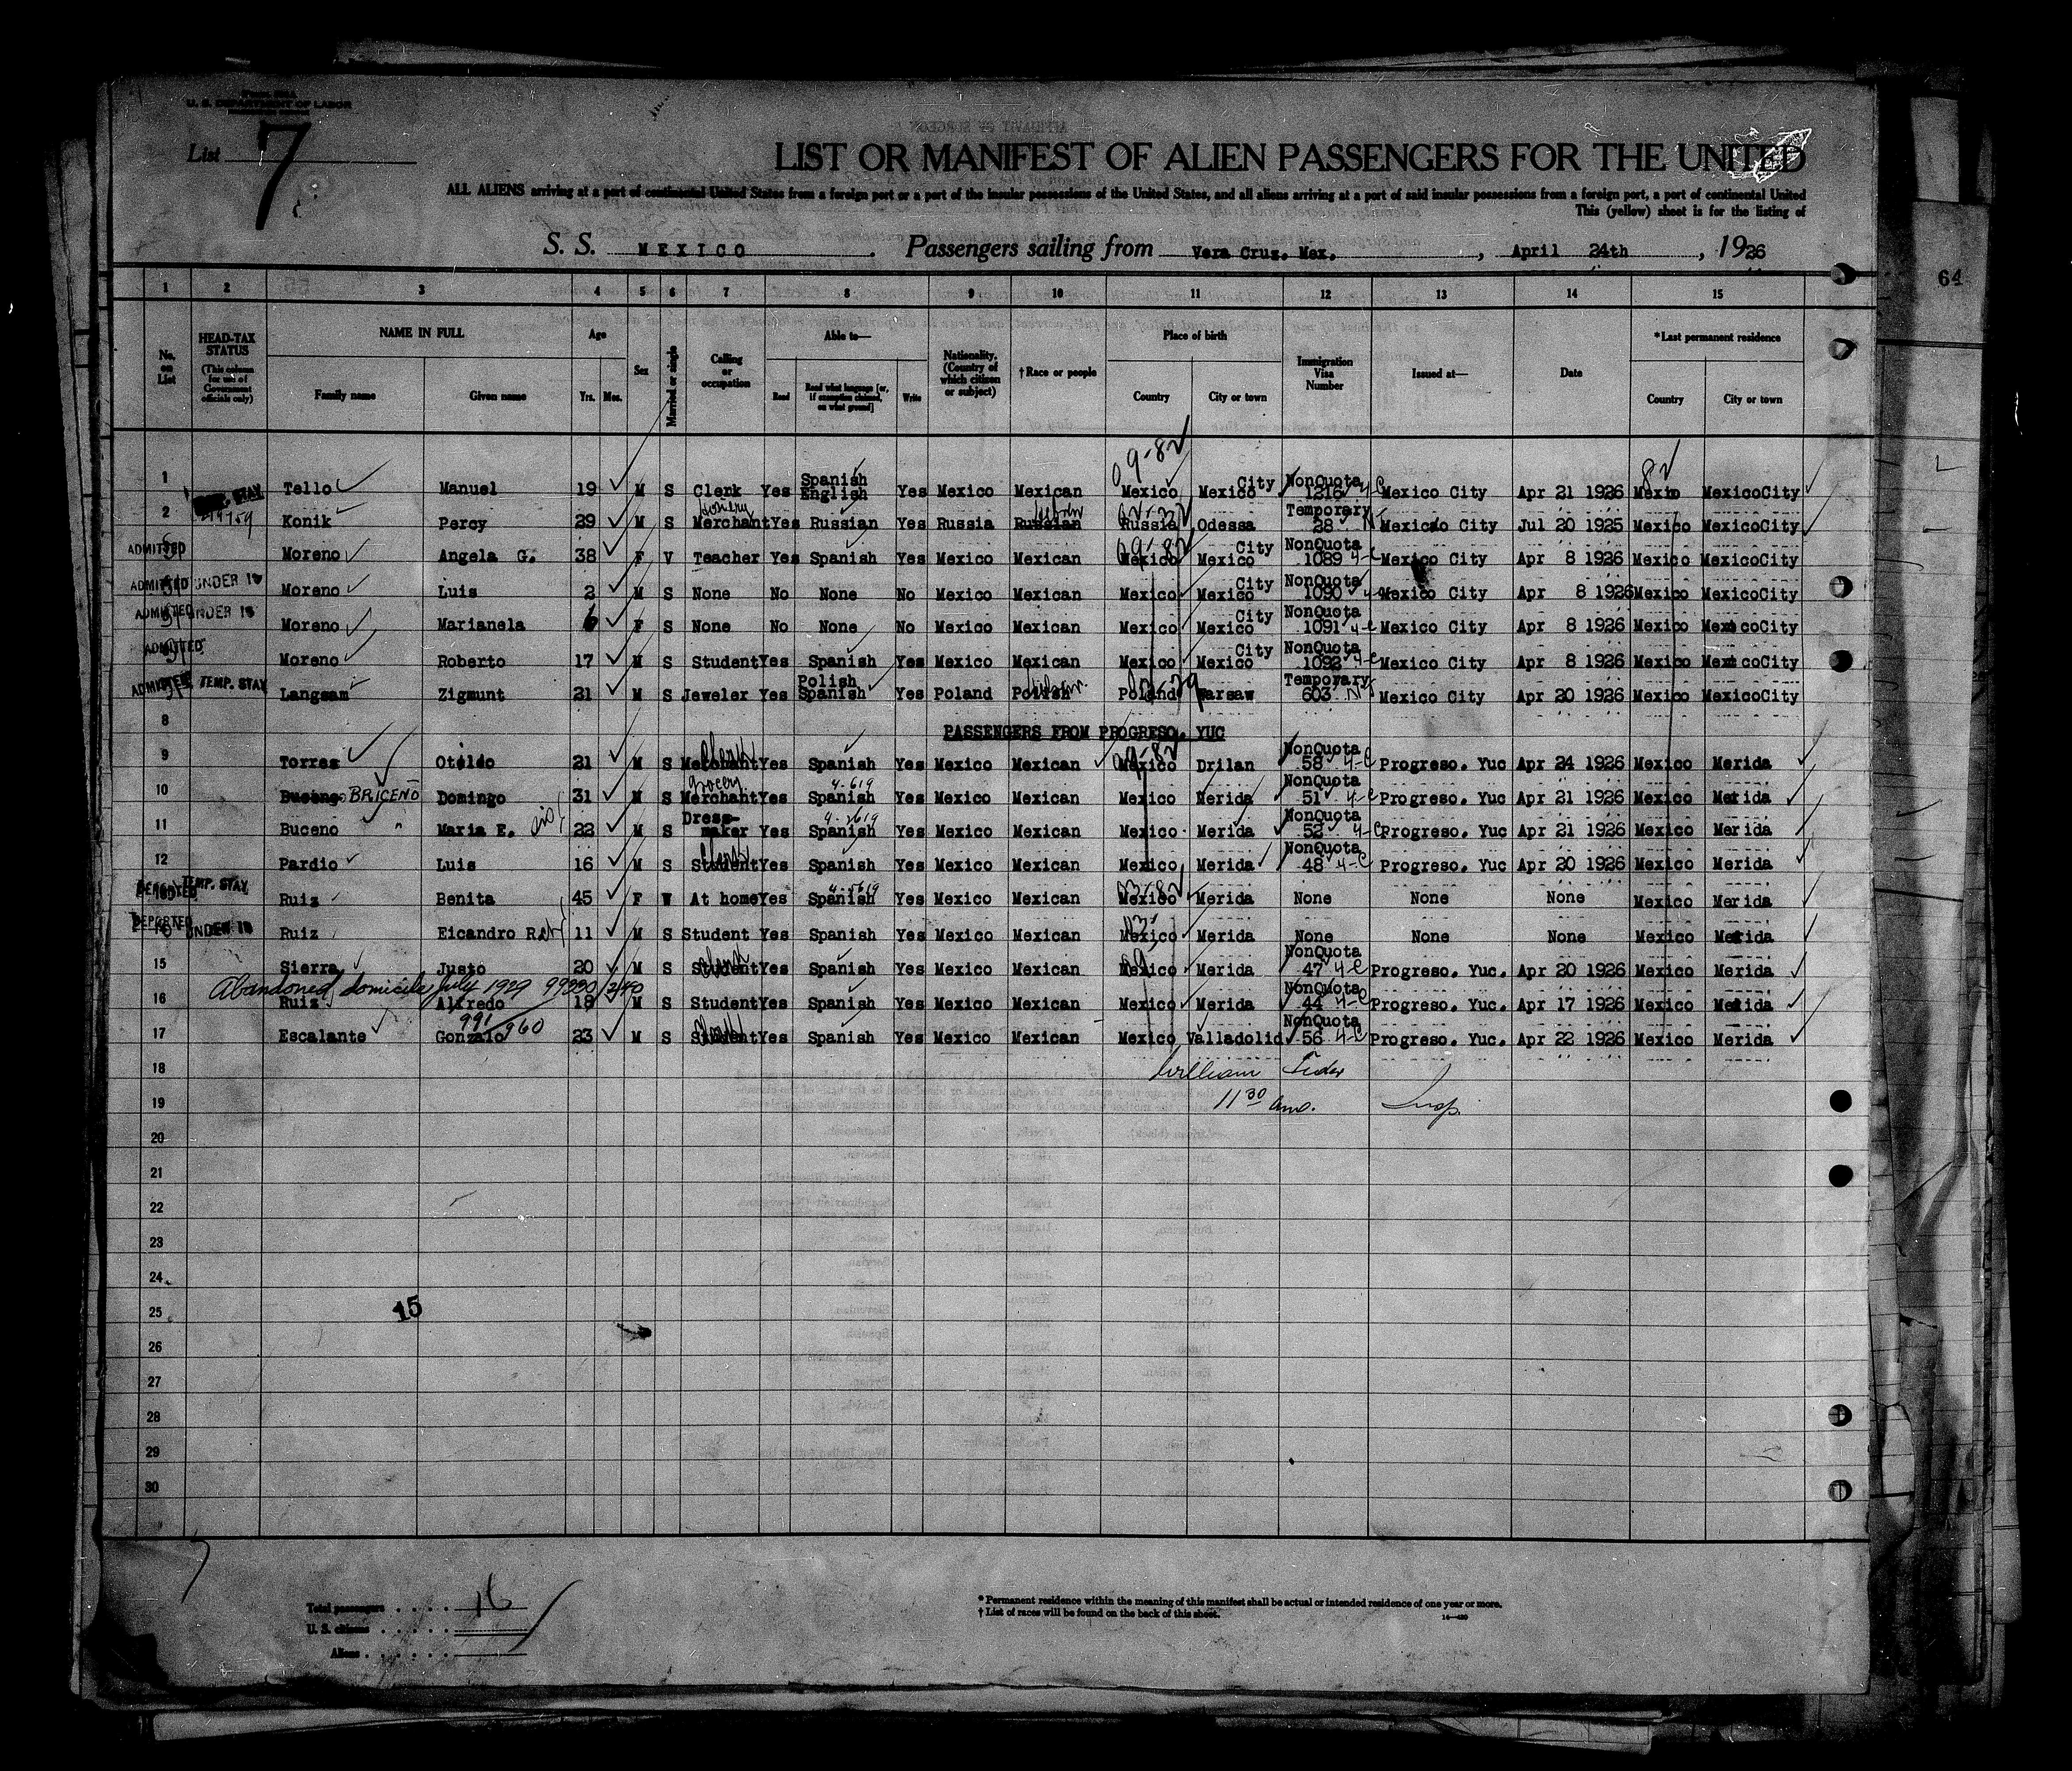 Form 500A
U. S. DEPARTMENT OF LABOR
List 7
LIST OR MANIFEST OF ALIEN PASSENGERS FOR THE UNITED
ALL ALIENS arriving at a port of continental United States from a foreign port or a port of the insular possessions of the United States, and all aliens arriving at a port of said insular possessions from a foreign port, a port of continental United
This (yellow) sheet is for the listing of
S. S. MEXICO. Passengers sailing from Vera Cruz. Mex., April 24th, 1926
64
1 2 3 4 5 6 7 8 9 10 11 12 13 14 15
No. on List
HEAD-TAX STATUS (This column for use of Government officials only)
NAME IN FULL Family name Given name
Age Yrs. Mos.
Sex
Married or single
Calling or occupation
Able to— Read Read what language [or, if exemption claimed, on what ground] Write
Nationality. (Country of which citizen or subject)
† Race or people
Place of birth Country City or town
Immigration Visa Number
Issued at—
Date
* Last permanent residence Country City or town
09-82 82
1 TEMP. STAY Tello Manuel 19 M S Clerk Yes Spanish English Yes Mexico Mexican Mexico Mexico City NonQuota 1216 4-C Mexico City Apr 21 1926 Mexico MexicoCity
2 Konik Percy 29 M S Merchant Yes Russian Yes Russia Russian Hebrew Russia Odessa Temporary 28 Mexico City Jul 20 1925 Mexico MexicoCity
ADMITTED Moreno Angela G. 38 F V Teacher Yes Spanish Yes Mexico Mexican 09-82 Mexico Mexico City NonQuota 1089 4-C Mexico City Apr 8 1926 Mexico MexicoCity
ADMITTED UNDER 16 Moreno Luis 2 M S None No None No Mexico Mexican Mexico Mexico City NonQuota 1090 4-C Mexico City Apr 8 1926 Mexico MexicoCity
ADMITTED UNDER 16 Moreno Marianela 6 F S None No None No Mexico Mexican Mexico Mexico City NonQuota 1091 4-C Mexico City Apr 8 1926 Mexico MexicoCity
ADMITTED Moreno Roberto 17 M S Student Yes Spanish Yes Mexico Mexican Mexico Mexico City NonQuota 1092 4-C Mexico City Apr 8 1926 Mexico MexicoCity
ADMITTED TEMP. STAY Langsam Zigmunt 21 M S Jeweler Yes Polish Spanish Yes Poland Polish Hebrew Poland Warsaw Temporary 603 Mexico City Apr 20 1926 Mexico MexicoCity
8 PASSENGERS FROM PROGRESO. YUC
9 Torres Otildo 21 M S Merchant Clerk Yes Spanish Yes Mexico Mexican 09-82 Mexico Drilan NonQuota 58 4-C Progreso. Yuc Apr 24 1926 Mexico Merida
10 Buceno BRICENO Domingo 31 M S Grocery Merchant Yes 4-619 Spanish Yes Mexico Mexican Mexico Merida NonQuota 51 4-C Progreso. Yuc Apr 21 1926 Mexico Merida
11 Buceno " Maria E. 22 M S Dress-maker Yes Spanish Yes Mexico Mexican Mexico Merida NonQuota 52 4-C Progreso. Yuc Apr 21 1926 Mexico Merida
12 Pardio Luis 16 M S Student Clerk Yes Spanish Yes Mexico Mexican Mexico Merida NonQuota 48 4-C Progreso. Yuc Apr 20 1926 Mexico Merida
DEPORTED TEMP. STAY Ruiz Benita 45 F W At home Yes Spanish Yes Mexico Mexican 03-82 Mexico Merida None None None Mexico Merida
DEPORTED UNDER 16 Ruiz Eicandro R. 11 M S Student Yes Spanish Yes Mexico Mexican Mexico Merida None None None Mexico Merida
15 Sierra Justo 20 M S Student Clerk Yes Spanish Yes Mexico Mexican 09 Mexico Merida NonQuota 47 4-C Progreso. Yuc. Apr 20 1926 Mexico Merida
Abandoned domicile July 1929
16 Ruiz Alfredo 18 M S Student Yes Spanish Yes Mexico Mexican Mexico Merida NonQuota 44 4-C Progreso. Yuc. Apr 17 1926 Mexico Merida
991 960
17 Escalante Gonzalo 23 M S Student Clerk Yes Spanish Yes Mexico Mexican Mexico Valladolid NonQuota 56 4-C Progreso. Yuc. Apr 22 1926 Mexico Merida
18 William
19 11 30 am. Insp.
20
21
22
23
24
25 15
26
27
28
29
30
Total passengers . . . . 16
U. S. citizens . . . . .
Aliens . . . . . .
* Permanent residence within the meaning of this manifest shall be actual or intended residence of one year or more.
† List of races will be found on the back of this sheet.